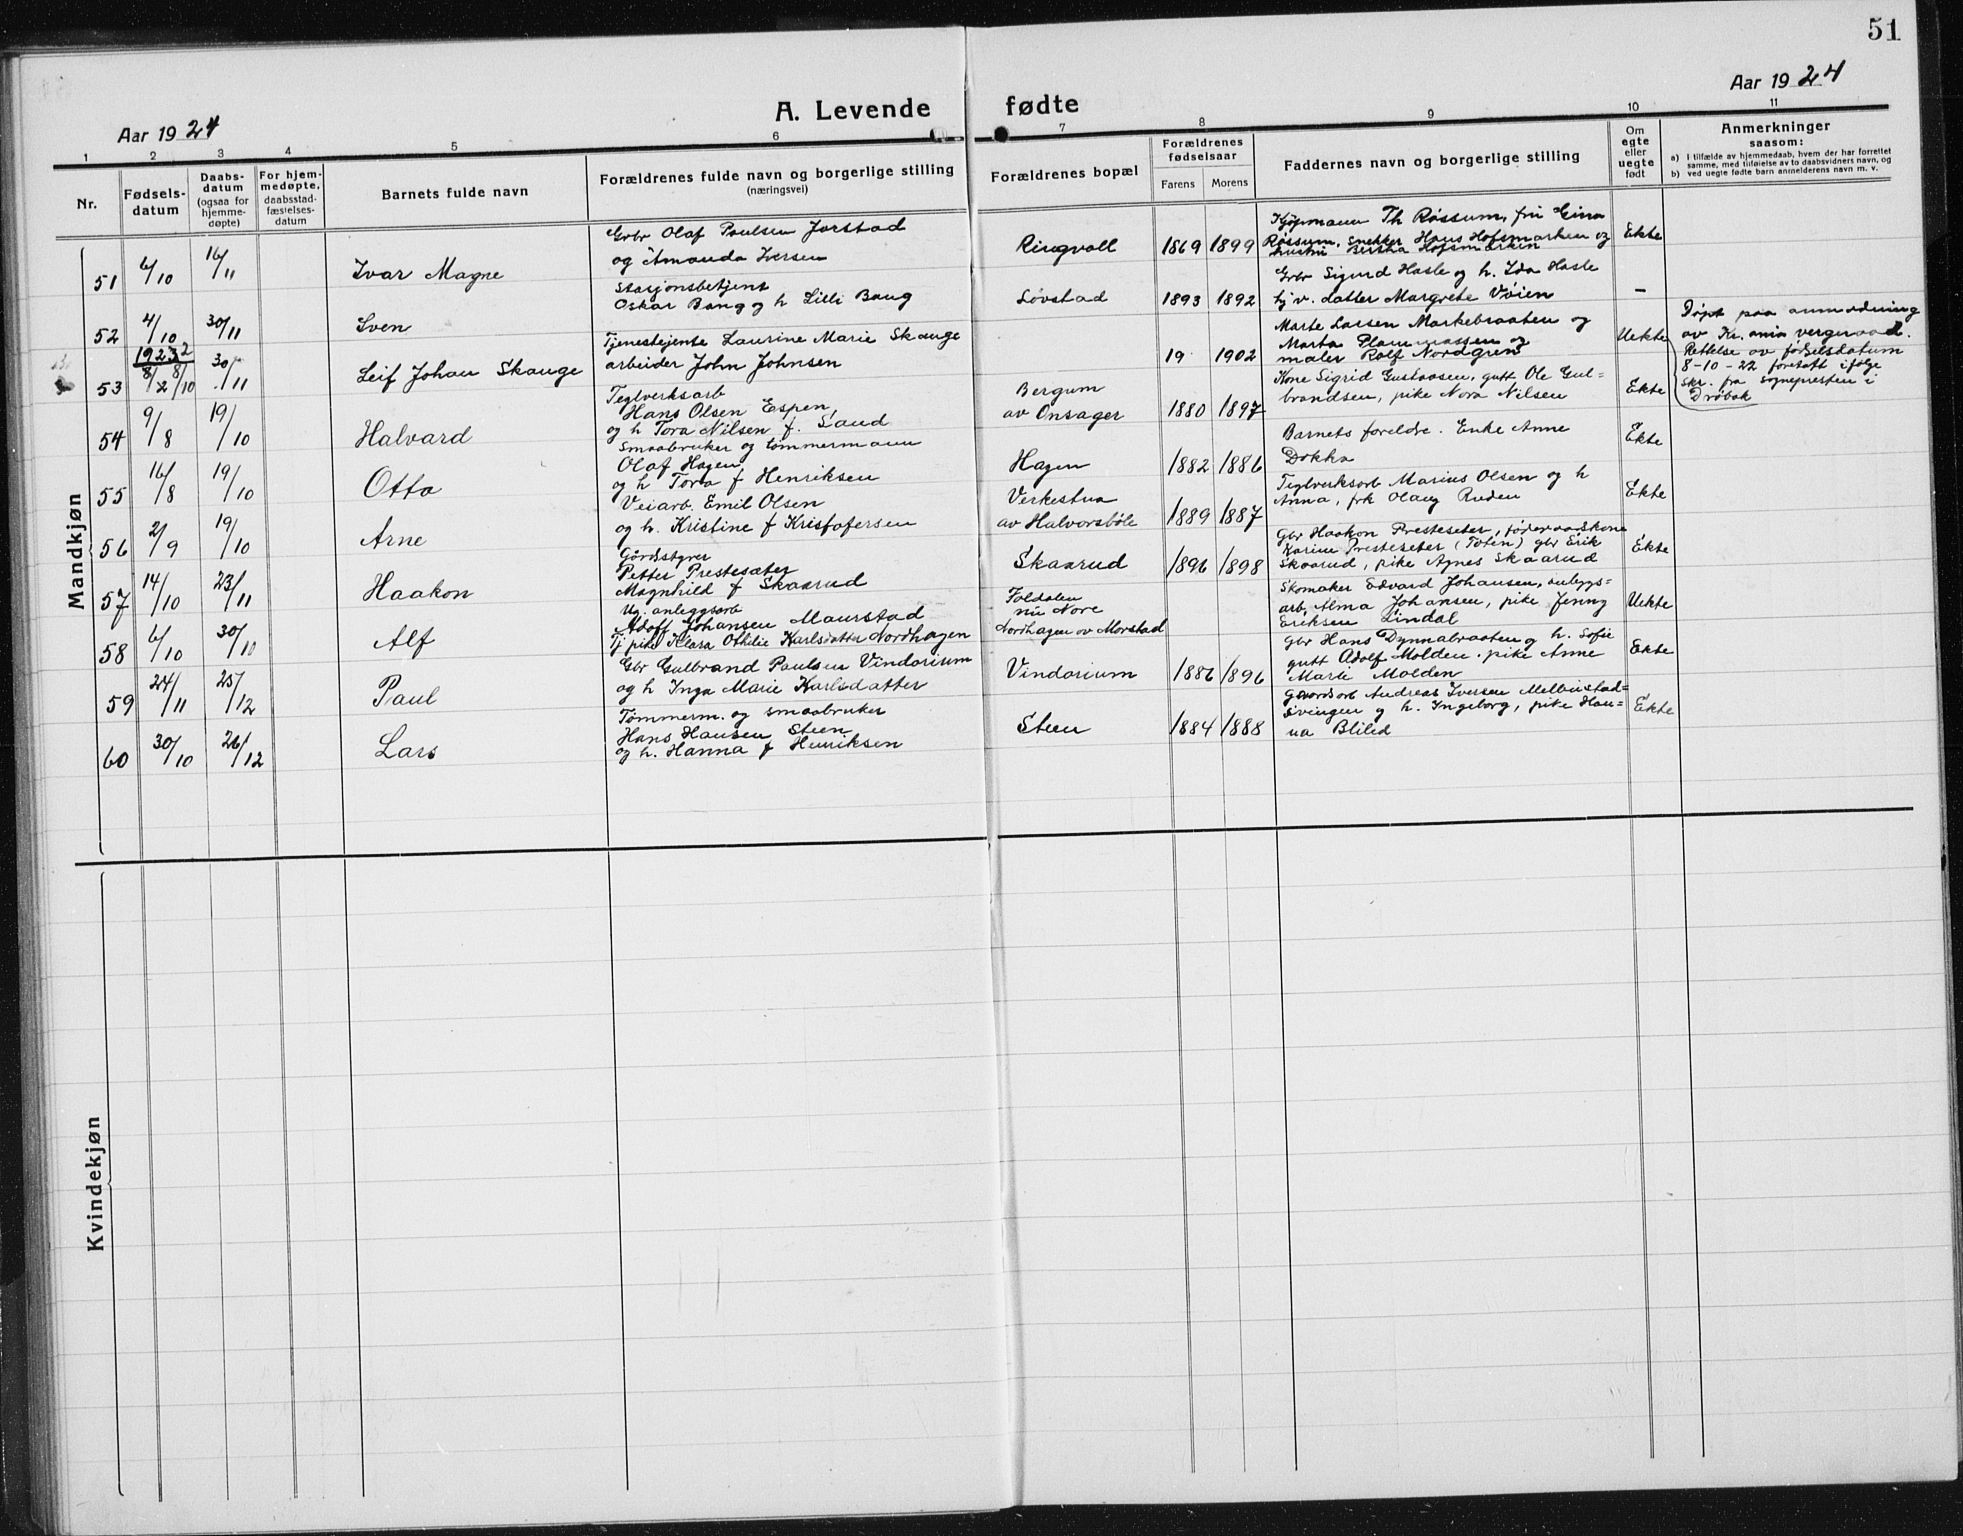 51
A. Levende fødte
Aar 1924
Aar 1924
1 2 3 4 5 6 7 8 9 10 11
Nr.
Fødsels-
datum
Daabs-
datum
(ogsaa for
hjemme-
døpte)
For hjem-
medøpte,
daabsstad-
fæstelses-
datum
Barnets fulde navn
Forældrenes fulde navn og borgerlige stilling
(næringsvei)
Forældrenes bopæl
Forældrenes
fødselsaar
Farens Morens
Faddernes navn og borgerlige stilling
Om
egte
eller
uegte
født
Anmerkninger
saasom:
a) I tilfælde av hjemmedaab, hvem der har forrettet
samme, med tilføielse av to daabsvidners navn, og
b) ved uegte fødte barn anmelderens navn m. v.
Mandkjøn
51 6/10 16/11 Ivar Magne
Grbr Olaf Paulsen Jorstad
og Amanda Iversen
Ringvoll 1869 1899
Kjøpmann Th Røssum, fru Gina
Røssum, snekker Hans Hofsmarken og
hustru Bertha Hofsmarken
Ekte
52 4/10 30/11 Sven
Stasjonsbetjent
Oskar Bang og h Lilli Bang
Lovstad 1893 1892
Grbr Sigurd Hasle og h. Ida Hasle
hj v. datter Margrete Vøien
–
53 19232 8/2 8/10 30/11 Leif Johan Skauge
Tjenestejente Laurine Marie Skauge
arbeider John Johnsen
19 1902
Marte Larsen Markebraaten og
Marta og
maler Rolf Nordgren
Uekte
Døpt paa anmodning
av Kr. ania vergeraad.
Rettelse av fødselsdatum
8-10-22 foretatt ifølge
skr. fra sognepresten i
Drøbak
54 9/8 19/10 Halvard
Teglverksarb
Hans Olsen Espen
og h Tora Nilsen f. Sand
Bergum
av Onsager 1880 1897
Kone Sigrid Gustavsen, gutt Ole Gul=
brandsen, pike Nora Nilsen
Ekte
55 16/8 19/10 Otto
Smaabruker og tømmermann
Olaf Hagen
og h Tora f Henriksen
Hagen 1882 1886
Barnets foreldre. Enke Anne
Dokka
Ekte
56 2/9 19/10 Arne
Veiarb. Emil Olsen
og h. Kristine f Kristofersen
Verkestua
av Halvorsbøle 1889 1887
Teglverksarb Marius Olsen og h
Anna, frk Olaug Ruden
Ekte
57 14/10 23/11 Haakon
Gårdstyrer
Petter Prestesæter
Magnhild f Skaarud
Skaarud 1896 1898
Gbr Haakon Presteseter, føderaadskone
Karine Presteseter (Toten) gbr Erik
Skaarud, pike Agnes Skaarud
Ekte
58 6/10 30/10 Alf
Ug. anleggsarb
Adolf Johansen Maurstad
Tj pike Klara Othilie Karlsdatter Nordhagen
Foldalen
nu Nore
Nordhagen av Morstad
Skomaker Edvard Johansen, anleggs=
arb. Alma Johansen, pike Jenny
Eriksen Lindal
Uekte
59 24/11 25/12 Paul
Gbr Gulbrand Paulsen Vindorium
og h Inga Marie Karlsdatter
Vindorium 1886 1896
Gbr Hans Dynnabraaten og h. Sofie
gutt Adolf Molden. pike Anne
Marie Molden
Ekte
60 30/10 26/12 Lars
Tømmerm. og smaabruker
Hans Hansen Steen
og h. Hanna f Henriksen
Steen 1884 1888
Gaardsarb Andreas Iversen Melbustad=
svingen og h. Ingeborg, pike Han=
na Blilid
Ekte
Kvindekjøn